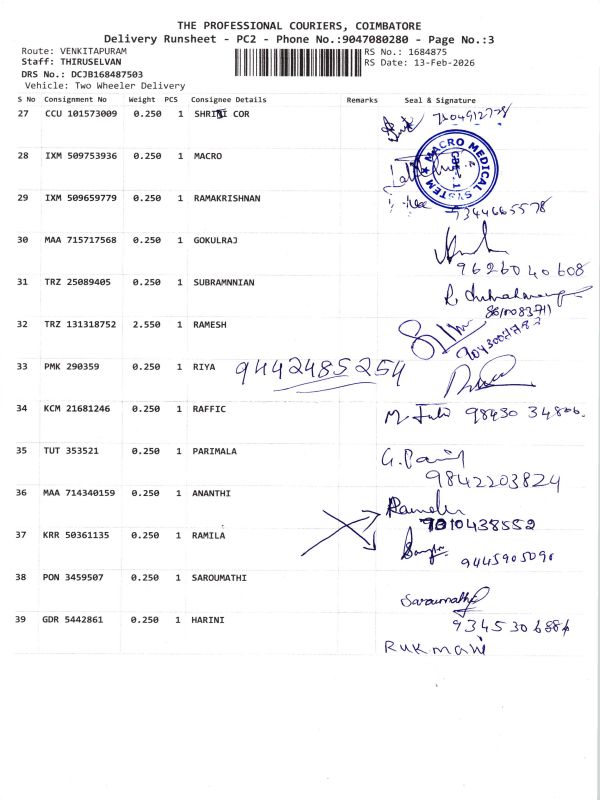 THE PROFESSIONAL COURIERS, COIMBATORE
Delivery Runsheet - PC2 - Phone No.:9047080280 - Page No.:3
Route: VENKITAPURAM RS No.: 1684875
Staff: THIRUSELVAN RS Date: 13-Feb-2026
DRS No.: DCJB168487503
Vehicle: Two Wheeler Delivery
S No Consignment No Weight PCS Consignee Details Remarks Seal & Signature
27 CCU 101573009 0.250 1 SHRINI COR
28 IXM 509753936 0.250 1 MACRO
MACRO MEDICAL SYSTEM
29 IXM 509659779 0.250 1 RAMAKRISHNAN
9344665578
30 MAA 715717568 0.250 1 GOKULRAJ
9626040608
31 TRZ 25089405 0.250 1 SUBRAMNNIAN
32 TRZ 131318752 2.550 1 RAMESH
33 PMK 290359 0.250 1 RIYA 9442485254
34 KCM 21681246 0.250 1 RAFFIC
35 TUT 353521 0.250 1 PARIMALA
9842203824
36 MAA 714340159 0.250 1 ANANTHI
37 KRR 50361135 0.250 1 RAMILA
38 PON 3459507 0.250 1 SAROUMATHI
Saroumathi
39 GDR 5442861 0.250 1 HARINI
Rukmani